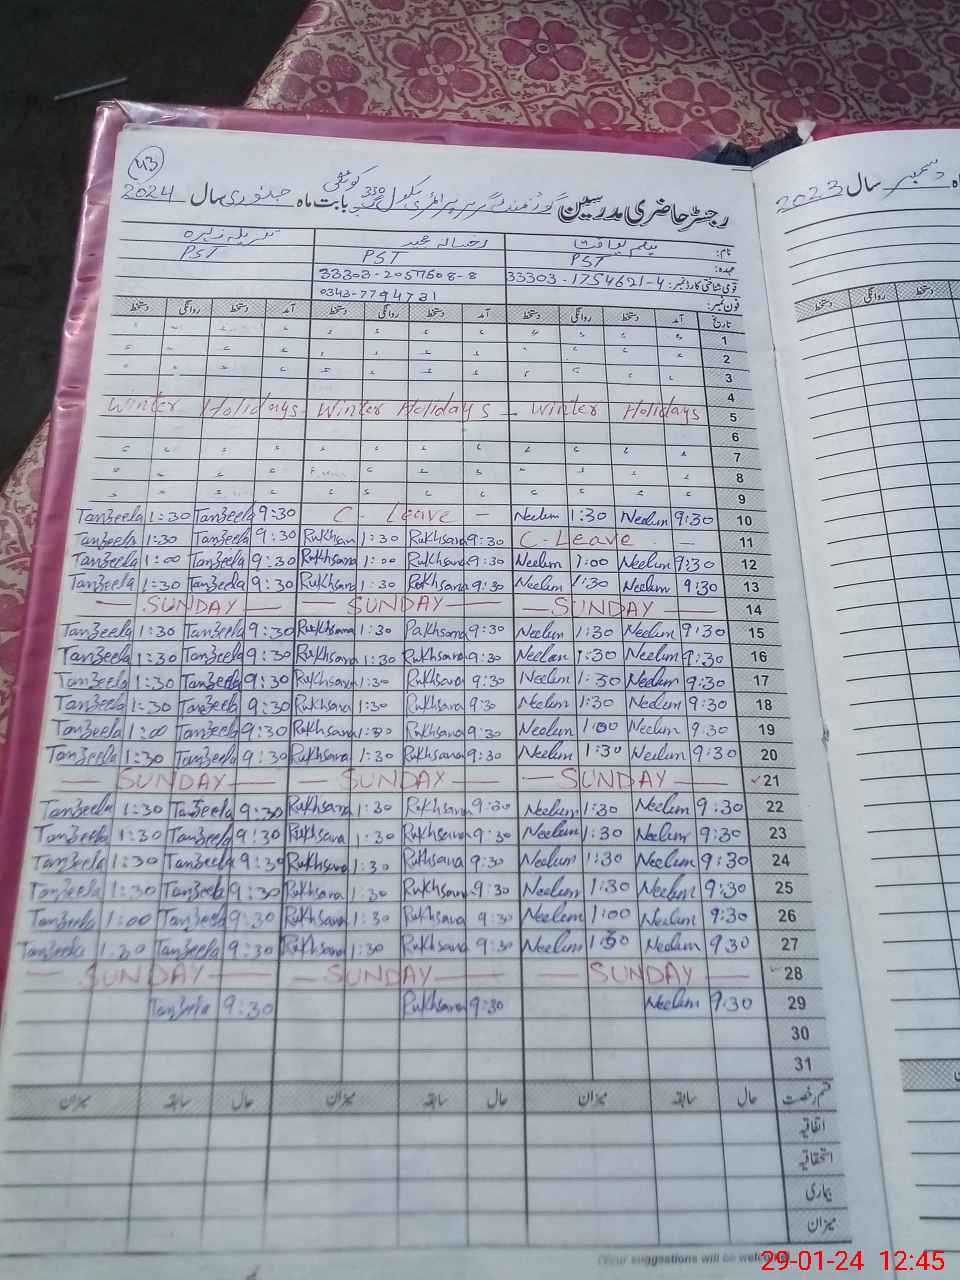 43
رجسٹر حاضری مدرسین گورنمنٹ گرلز پرائمری سکول 330 بابت ماہ جنوری سال 2024
نام: نیلم لیاقت رخسانہ مجید تنزیلہ زہرہ
عہدہ: PST PST PST
قومی شناختی کارڈ نمبر: 33303-1754621-4 33303-2057608-8
فون نمبر: 0343-7794731
تاریخ آمد دستخط روانگی دستخط آمد دستخط روانگی دستخط آمد دستخط روانگی دستخط
1
2
3
4
Winter Holidays - Winter Holidays - Winter Holidays 5
6
7
8
9
Tanzeela 1:30 Tanzeela 9:30 C - Leave - Neelum 1:30 Neelum 9:30 10
Tanzeela 1:30 Tanzeela 9:30 Rukhsana 1:30 Rukhsana 9:30 C-Leave - 11
Tanzeela 1:00 Tanzeela 9:30 Rukhsana 1:00 Rukhsana 9:30 Neelum 1:00 Neelum 9:30 12
Tanzeela 1:30 Tanzeela 9:30 Rukhsana 1:30 Rukhsana 9:30 Neelum 1:30 Neelum 9:30 13
— SUNDAY — — SUNDAY — — SUNDAY — 14
Tanzeela 1:30 Tanzeela 9:30 Rukhsana 1:30 Rukhsana 9:30 Neelum 1:30 Neelum 9:30 15
Tanzeela 1:30 Tanzeela 9:30 Rukhsana 1:30 Rukhsana 9:30 Neelum 1:30 Neelum 9:30 16
Tanzeela 1:30 Tanzeela 9:30 Rukhsana 1:30 Rukhsana 9:30 Neelum 1:30 Neelum 9:30 17
Tanzeela 1:30 Tanzeela 9:30 Rukhsana 1:30 Rukhsana 9:30 Neelum 1:30 Neelum 9:30 18
Tanzeela 1:00 Tanzeela 9:30 Rukhsana Rukhsana 9:30 Neelum 1:00 Neelum 9:30 19
Tanzeela 1:30 Tanzeela 9:30 Rukhsana 1:30 Rukhsana 9:30 Neelum 1:30 Neelum 9:30 20
— SUNDAY — — SUNDAY — — SUNDAY — 21
Tanzeela 1:30 Tanzeela 9:30 Rukhsana 1:30 Rukhsana 9:30 Neelum 1:30 Neelum 9:30 22
Tanzeela 1:30 Tanzeela 9:30 Rukhsana 1:30 Rukhsana 9:30 Neelum 1:30 Neelum 9:30 23
Tanzeela 1:30 Tanzeela 9:30 Rukhsana 1:30 Rukhsana 9:30 Neelum 1:30 Neelum 9:30 24
Tanzeela 1:30 Tanzeela 9:30 Rukhsana 1:30 Rukhsana 9:30 Neelum 1:30 Neelum 9:30 25
Tanzeela 1:00 Tanzeela 9:30 Rukhsana 1:30 Rukhsana 9:30 Neelum 1:00 Neelum 9:30 26
Tanzeela 1:30 Tanzeela 9:30 Rukhsana 1:30 Rukhsana 9:30 Neelum 1:30 Neelum 9:30 27
— SUNDAY — — SUNDAY — — SUNDAY — 28
Tanzeela 9:30 Rukhsana 9:30 Neelum 9:30 29
30
31
قسم رخصت حال سابقہ میزان حال سابقہ میزان حال سابقہ میزان
اتفاقیہ
استحقاقیہ
بیماری
میزان
(Your suggestions will be welcomed)
ماہ دسمبر سال 2023
دستخط روانگی دستخط
29-01-24 12:45